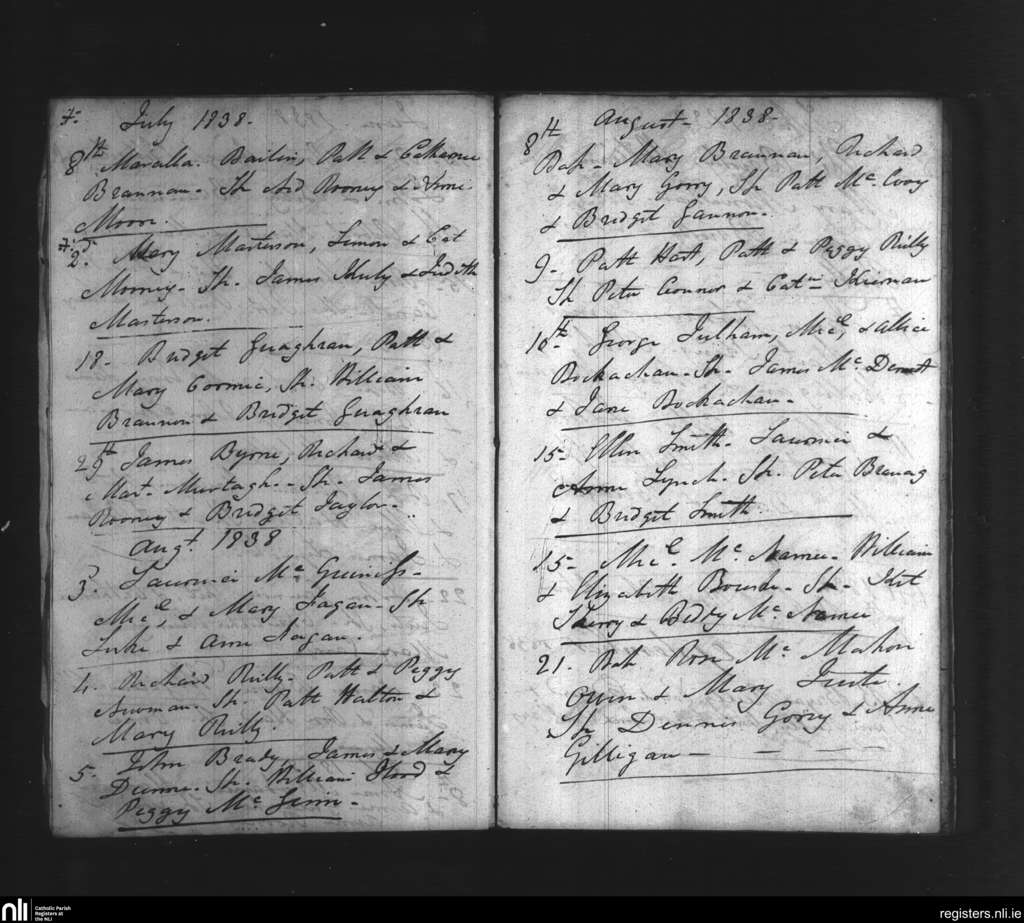 July 1838.
8th Maralla. Bailin, Patt & Catherine
Brannan. Sh And Rooney & Anne
Moore.
2d. Mary Masterson, Simon & Cat
Mooney. Sh. James & Judith
Masterson.
18. Bridget Guaghran, Patt &
Mary Cormic, Sh. William
Brannon & Bridget Guaghran
29th James Byrne, Richard &
Mart. Murtagh. Sh. James
Rooney & Bridget Taylor.
Augt. 1838
3. Laurence Mc Guiness.
Micl, & Mary Fagan. Sh
Luke & Anne Fagan.
4. Richard Reilly. Patt & Peggy
Newman. Sh. Patt Halton &
Mary Reilly.
5. John Brady, James & Mary
Dunne. Sh. William Flood &
Peggy Mc
August 1838.
8th
Bap. Mary Brannan, Richard
& Mary Gorry, Sh Patt Mc. Evoy
& Bridget Gannon.
9. Patt Hart, Patt & Peggy Reilly
Sh Peter Connor & Catne Kiernan
10th George Fulham, Micl, & Allice
Bockachan. Sh. James Mc Dermtt
& Jane Bockachan.
15. Ellen Smith. Laurence &
Anne Lynch. Sh. Peter
& Bridget Smith.
15. Micl. Mc Namee. William
& Elizabeth Sh. Kit
Sherry & Betty Mc Namee
21. Bap Rose Mc Mahon
Owen & Mary Tuite.
Sh Dennis Gorry & Anne
Gilligan
nli Catholic Parish
Registers at
the NLI
registers.nli.ie